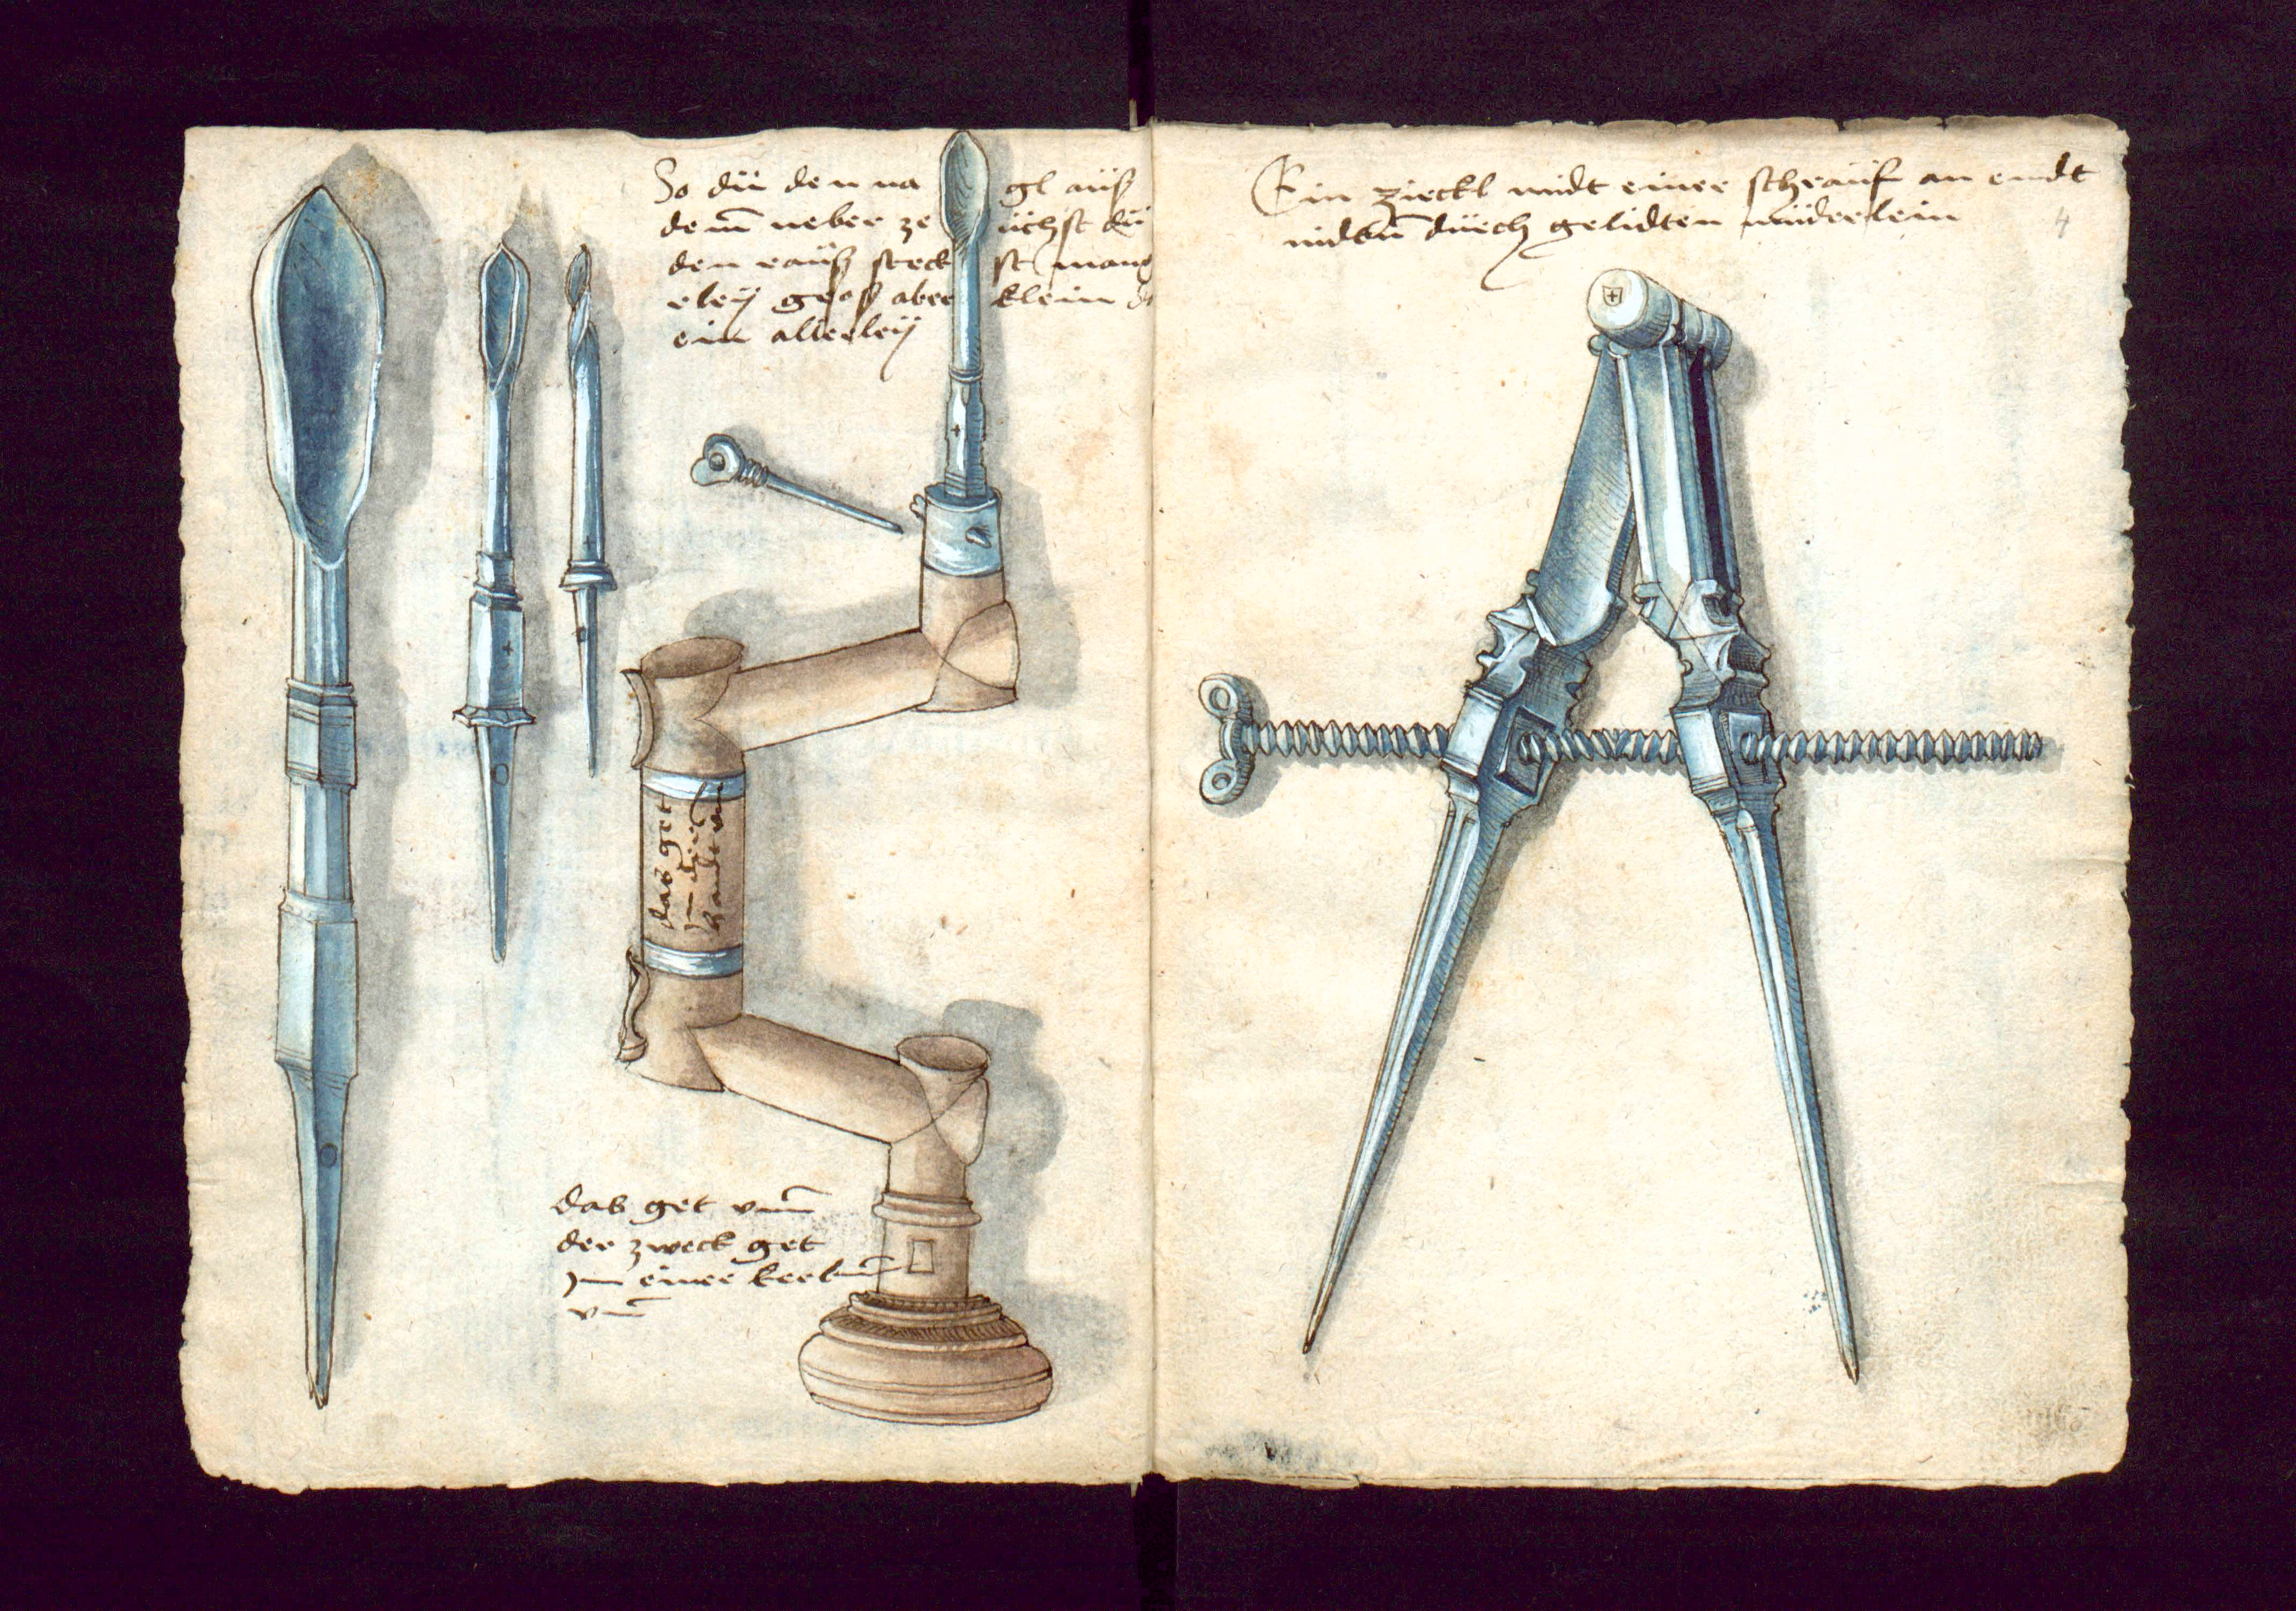 So dü den na gl auß
dem neber ze üchst dü
den rauß steck st mang
erleÿ groß aber klein
ein allerleÿ
das get
in der
handt um
das get vm̄
der zweck get
In einer kerbm̄
vm̄
Ein zierckl midt einer schrauf an endt
midtn̄ düerch gelidten müderlein
4